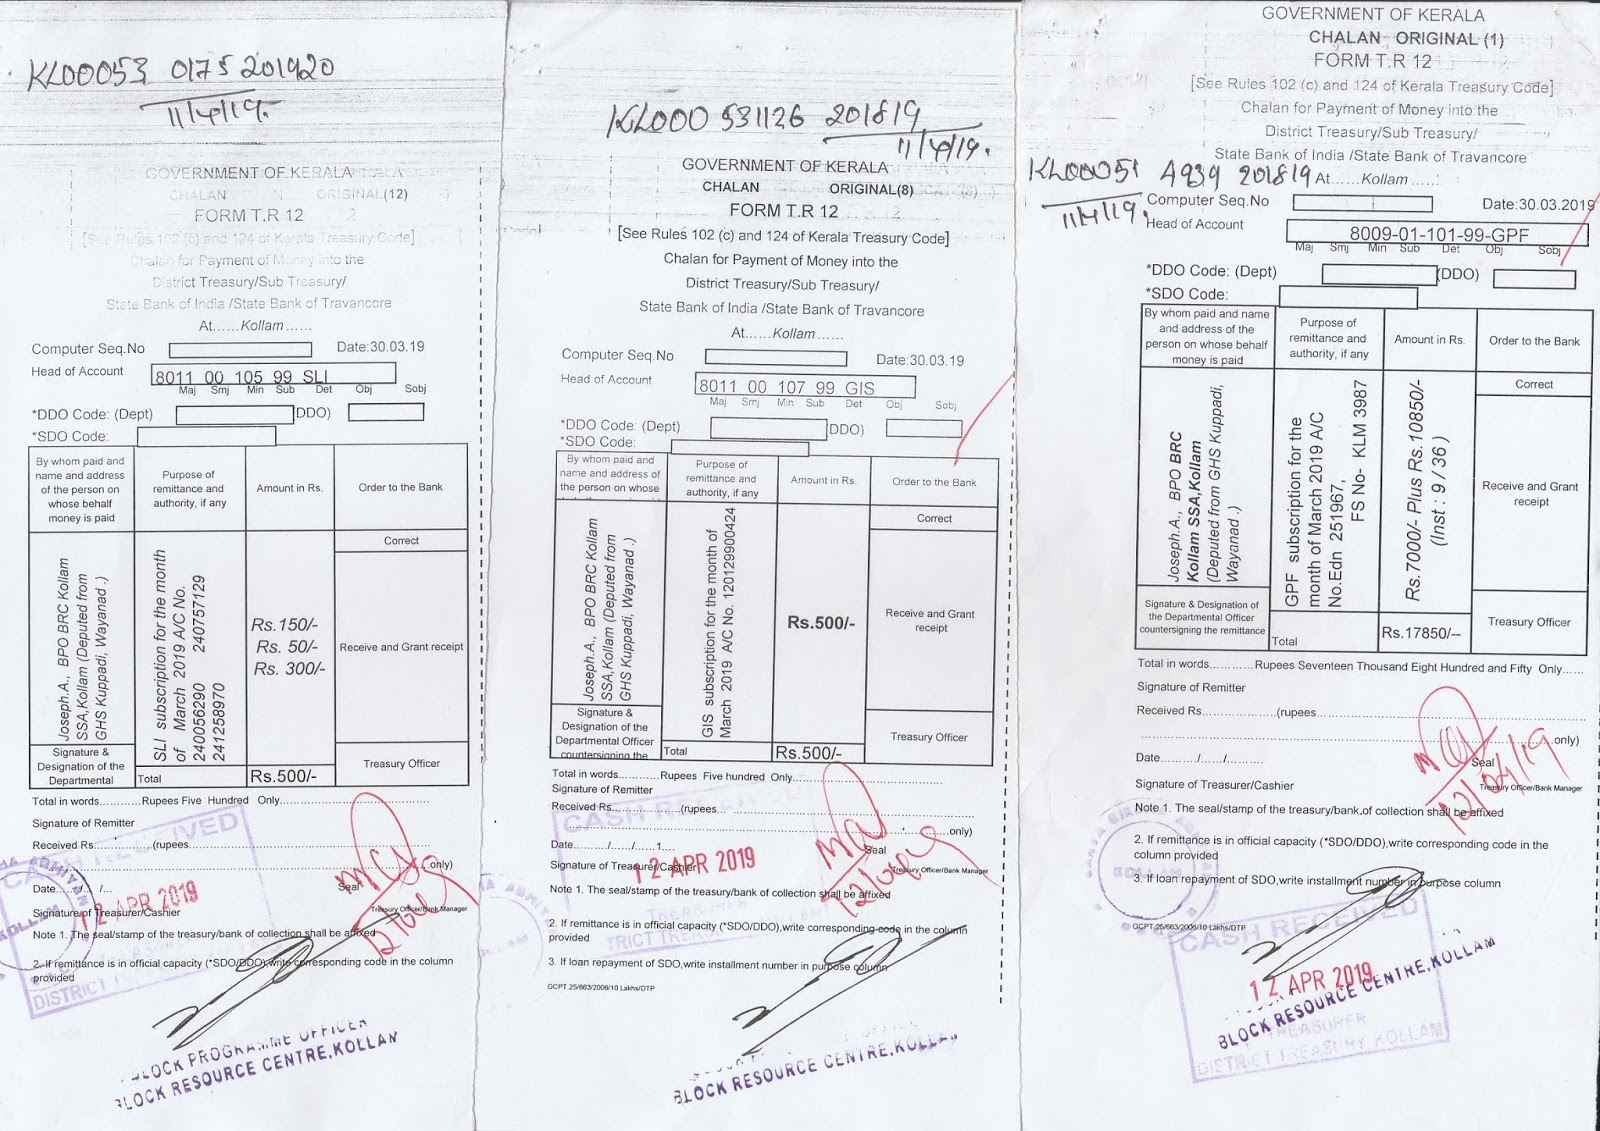 KL00053 0175 201920
11/4/19.
GOVERNMENT OF KERALA
CHALAN ORIGINAL(12)
FORM T.R 12
[See Rules 102 (c) and 124 of Kerala Treasury Code]
Chalan for Payment of Money into the
District Treasury/Sub Treasury/
State Bank of India /State Bank of Travancore
At......Kollam ......
Computer Seq.No Date:30.03.19
Head of Account 8011 00 105 99 SLI
Maj Smj Min Sub Det Obj Sobj
*DDO Code: (Dept) DDO)
*SDO Code:
By whom paid and name and address of the person on whose behalf money is paid
Purpose of remittance and authority, if any
Amount in Rs.
Order to the Bank
Correct
Joseph.A., BPO BRC Kollam
SSA,Kollam (Deputed from
GHS Kuppadi, Wayanad .)
SLI subscription for the month
of March 2019 A/C No.
240056290 240757129
241258970
Rs.150/-
Rs. 50/-
Rs. 300/-
Receive and Grant receipt
Signature &
Designation of the
Departmental
Total Rs.500/-
Treasury Officer
Total in words............Rupees Five Hundred Only
Signature of Remitter
Received Rs. (rupees
only)
Date
Seal
CASH RECEIVED
12 APR 2019
Signature of Treasurer/Cashier
Treasury Officer/Bank Manager
Note 1. The seal/stamp of the treasury/bank of collection shall be affixed
2. If remittance is in official capacity (*SDO/DDO),write corresponding code in the column
provided
KOLLAM
BLOCK PROGRAMME OFFICER
BLOCK RESOURCE CENTRE,KOLLAM
KL000 531126 201819
11/4/19.
GOVERNMENT OF KERALA
CHALAN ORIGINAL(8)
FORM T.R 12
[See Rules 102 (c) and 124 of Kerala Treasury Code]
Chalan for Payment of Money into the
District Treasury/Sub Treasury/
State Bank of India /State Bank of Travancore
At......Kollam ......
Computer Seq.No Date:30.03.19
Head of Account 8011 00 107 99 GIS
Maj Smj Min Sub Det Obj Sobj
*DDO Code: (Dept) DDO)
*SDO Code:
By whom paid and
name and address of
the person on whose
Purpose of remittance and authority, if any
Amount in Rs.
Order to the Bank
Correct
Joseph.A., BPO BRC Kollam
SSA,Kollam (Deputed from
GHS Kuppadi, Wayanad .)
GIS subscription for the month of
March 2019 A/C No. 120129900424
Rs.500/-
Receive and Grant receipt
Signature &
Designation of the
Departmental Officer
countersigning the
Total Rs.500/-
Treasury Officer
Total in words............Rupees Five hundred Only
Signature of Remitter
Received Rs. (rupees
only)
Date
Seal
12 APR 2019
Signature of Treasurer/Cashier
Treasury Officer/Bank Manager
Note 1. The seal/stamp of the treasury/bank of collection shall be affixed
2. If remittance is in official capacity (*SDO/DDO),write corresponding code in the column
provided
3. If loan repayment of SDO,write installment number in purpose column
GCPT.25/663/2006/10 Lakhs/DTP
BLOCK RESOURCE CENTRE,KOLLAM
GOVERNMENT OF KERALA
CHALAN ORIGINAL (1)
FORM T.R 12
[See Rules 102 (c) and 124 of Kerala Treasury Code]
Chalan for Payment of Money into the
District Treasury/Sub Treasury/
State Bank of India /State Bank of Travancore
KL00051 4939 201819 At......Kollam ......
11/4/19.
Computer Seq.No Date:30.03.2019
Head of Account 8009-01-101-99-GPF
Maj Smj Min Sub Det Obj Sobj
*DDO Code: (Dept) (DDO)
*SDO Code:
By whom paid and name and address of the person on whose behalf money is paid
Purpose of remittance and authority, if any
Amount in Rs.
Order to the Bank
Correct
Joseph.A., BPO BRC
Kollam SSA,Kollam
(Deputed from GHS Kuppadi,
Wayanad .)
GPF subscription for the
month of March 2019 A/C
No.Edn 251967,
FS No- KLM 3987
Rs.7000/- Plus Rs.10850/-
(Inst : 9 / 36 )
Receive and Grant receipt
Signature & Designation of
the Departmental Officer
countersigning the remittance
Total Rs.17850/--
Treasury Officer
Total in words............Rupees Seventeen Thousand Eight Hundred and Fifty Only......
Signature of Remitter
Received Rs. (rupees
only)
Date....../....../..........
Seal
12/04/19
Signature of Treasurer/Cashier
Treasury Officer/Bank Manager
Note 1. The seal/stamp of the treasury/bank,of collection shall be affixed
2. If remittance is in official capacity (*SDO/DDO),write corresponding code in the
column provided
3. If loan repayment of SDO,write installment number in purpose column
KOLLAM
GCPT.25/663/2006/10 Lakhs/DTP
CASH RECEIVED
12 APR 2019
BLOCK RESOURCE CENTRE,KOLLAM
TREASURER
DISTRICT TREASURY, KOLLAM